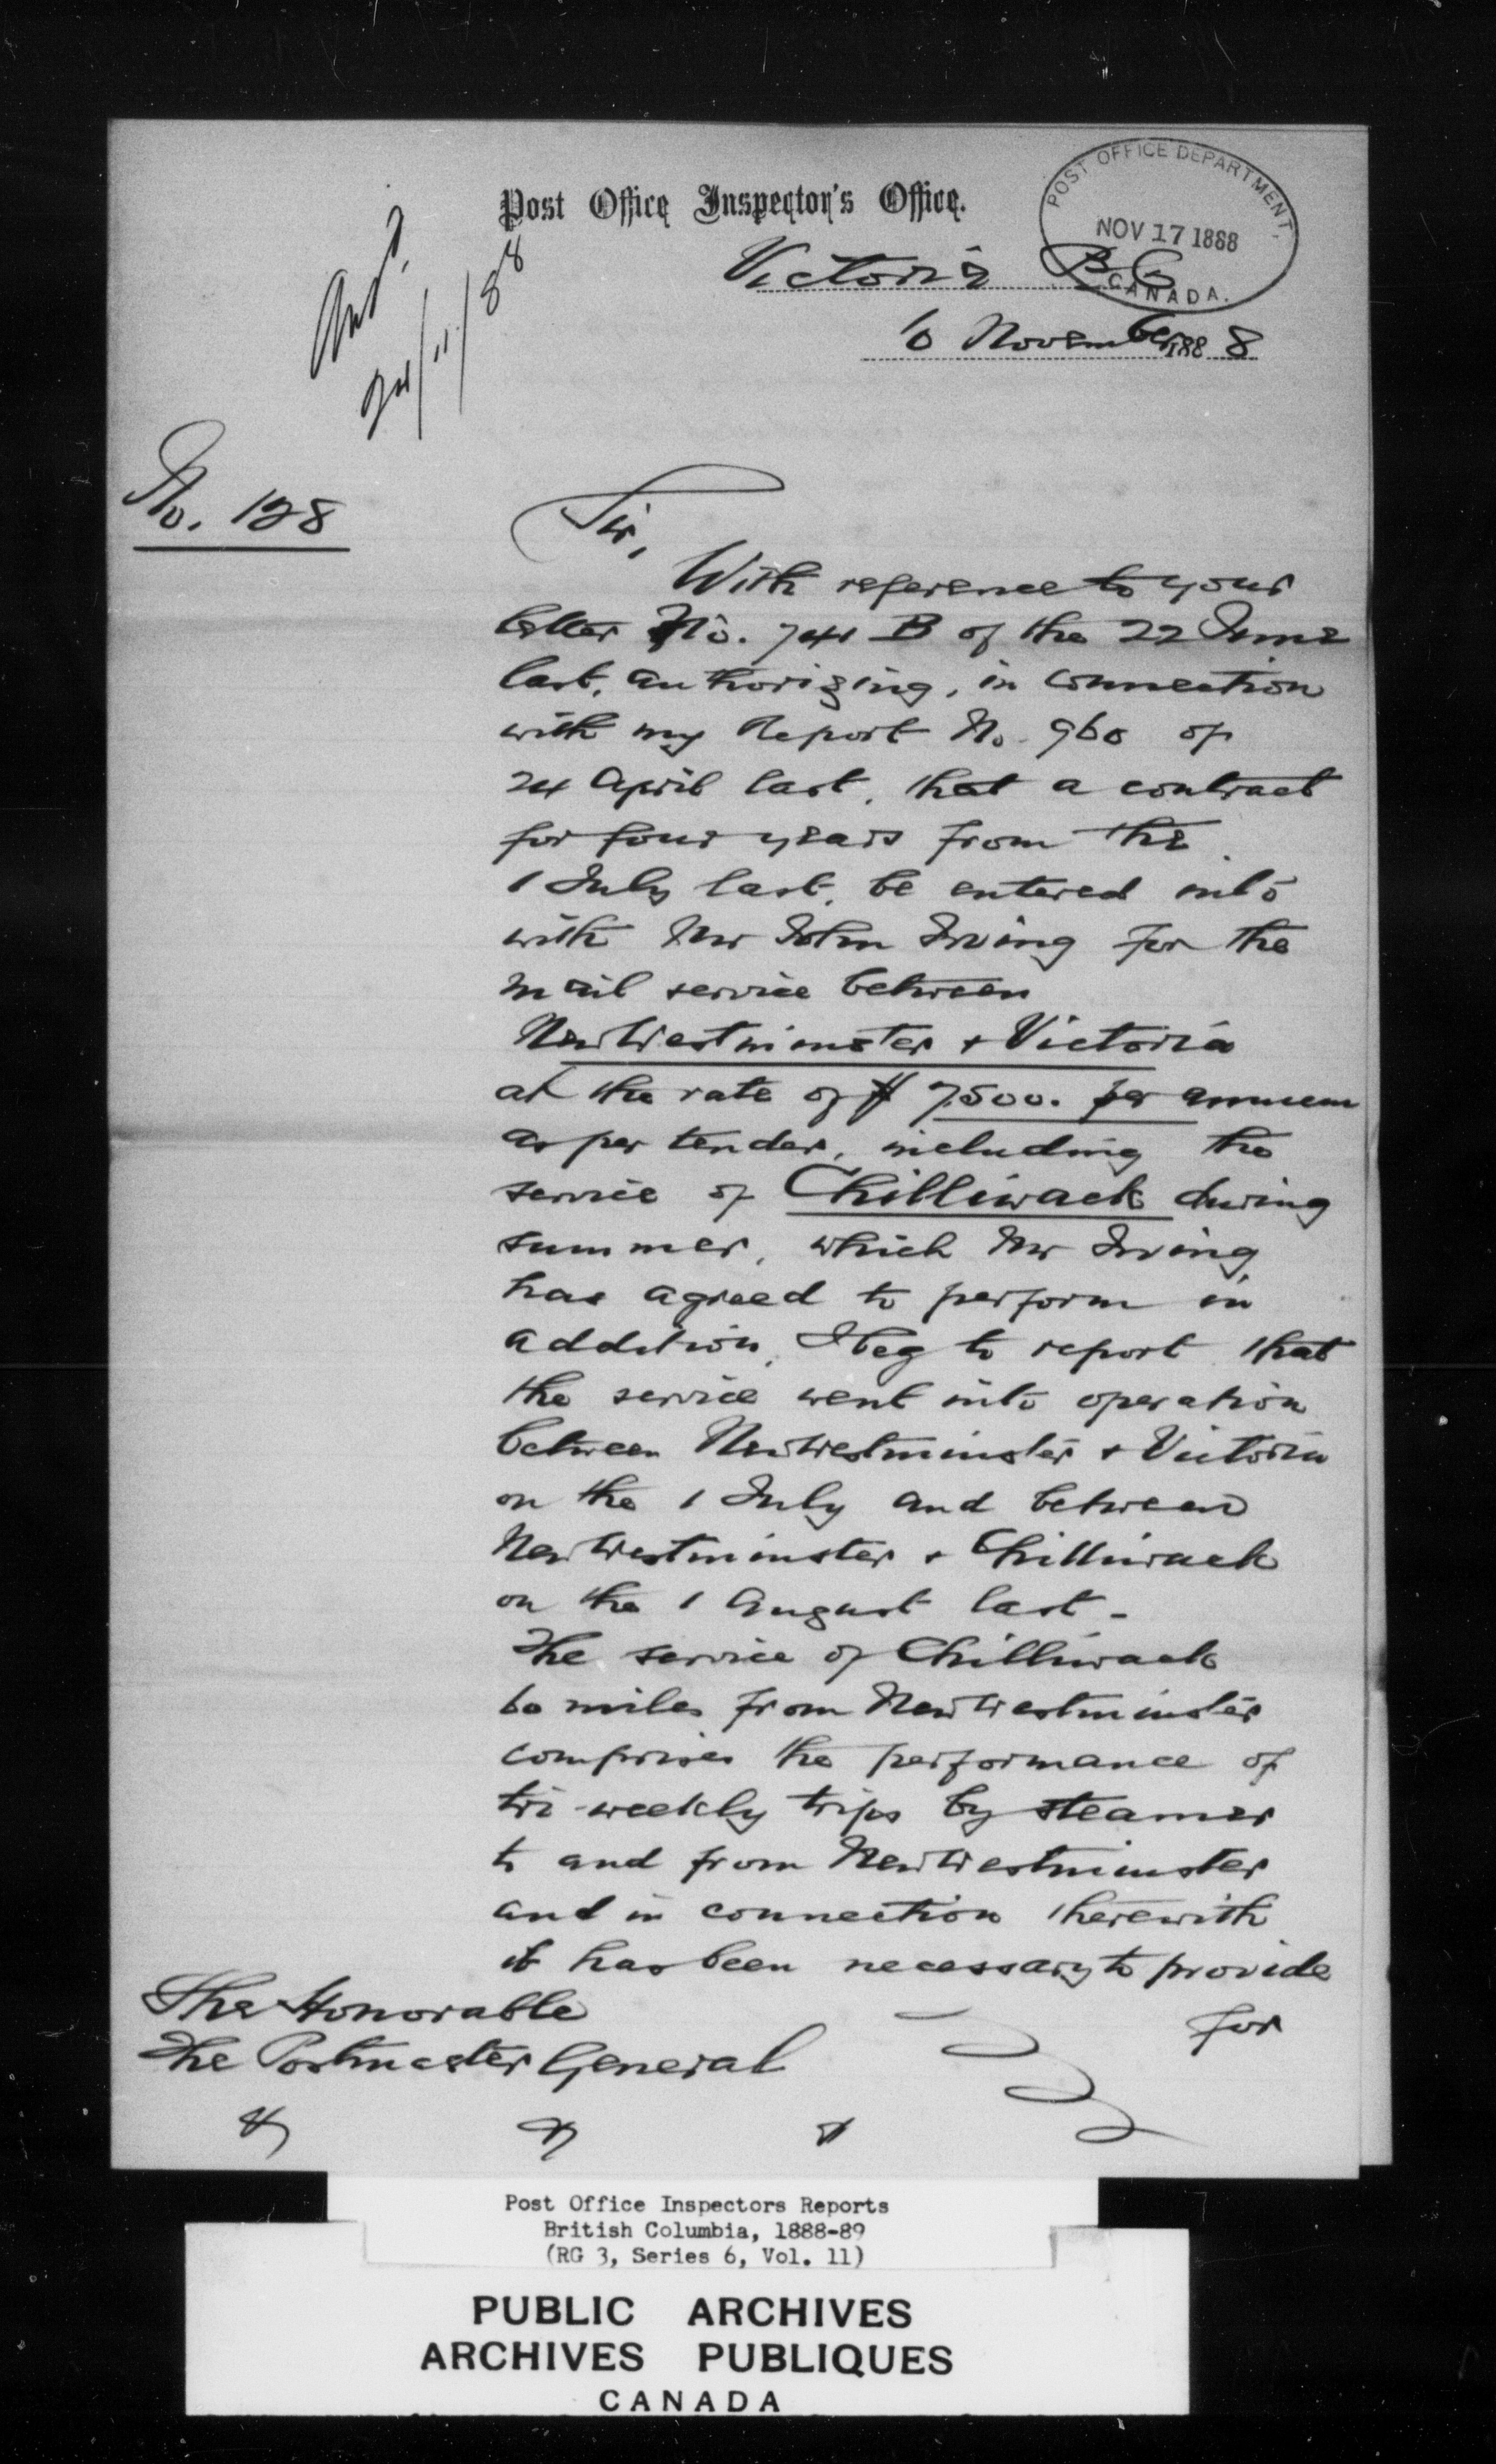 Post Office Inspector's Office.
POST OFFICE DEPARTMENT,
NOV 17 1888
CANADA.
Victoria B.C.
10 November 1888
Ansd.
24/11/88
No. 128
Sir,
With reference to your
letter No. 741 B of the 22 June
last, authorizing, in connection
with my Report No. 960 of
24 April last, that a contract
for four years from the
1 July last, be entered into
with Mr John Irving for the
mail service between
New Westminster & Victoria
at the rate of $ 7500. per annum
as per tender, including the
service of Chilliwack during
summer, which Mr Irving
has agreed to perform in
addition, I beg to report that
the service went into operation
between New Westminster & Victoria
on the 1 July and between
New Westminster & Chilliwack
on the 1 August last -
The service of Chilliwack
60 miles from New Westminster
comprises the performance of
tri-weekly trips by steamer
to and from New Westminster
and in connection therewith
it has been necessary to provide
for
The Honorable
The Postmaster General
& & &
Post Office Inspectors Reports
British Columbia, 1888-89
(RG 3, Series 6, Vol. 11)
PUBLIC ARCHIVES
ARCHIVES PUBLIQUES
CANADA